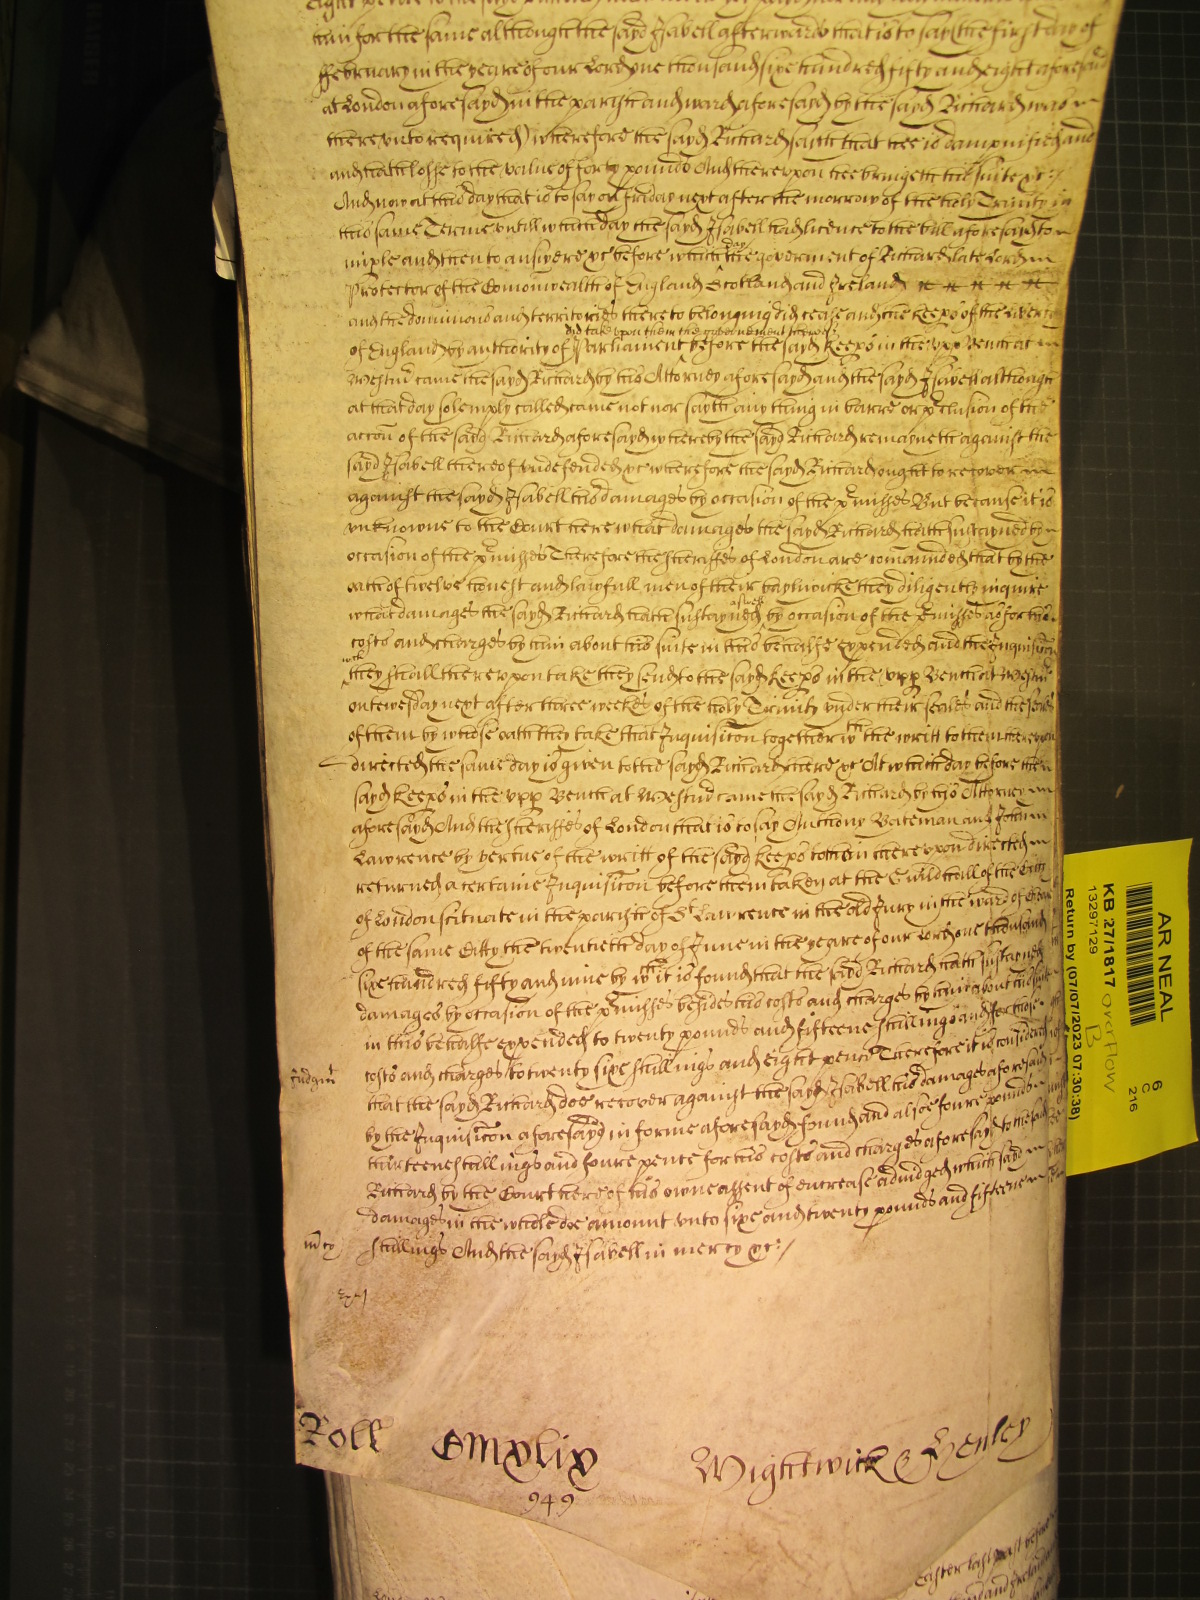 him for the same although the sayd Isabell afterwards that is to say the first day of
ffebruary in the yeare of our Lord one thousand sixe hundred fifty and eight aforesaid
at London aforesayd in the parish and ward aforesayd by the sayd Richard was
there vnto required) wherefore the sayd Richard saith that hee is dampnified and
and hath losse to the value of forty pounds And therevpon hee bringeth his suite &c:/
And now at this day that is to say on friday next after the morrow of the holy Trinity in
this same Terme vntill which day the sayd Isabell had licence to the bill aforesayd to
imple and then to answere &c before which day the goverment of Richard late Lord
Protector of the Comonwealth of England Scotland and Ireland
and the dominions and territories thereto belonging did cease and the keeps of the liberty
did take vpon them the government thereof
of England by authority of Parliament before the sayd keeps in the vpp Bench at
Westmr came the sayd Richard by his Attorney aforesayd and the sayd Isabell although
at that day solemply called came not nor sayth any thing in barre or pclusion of the
accon of the sayd Richard aforesayd whereby the sayd Richard remayneth against the
sayd Isabell thereof vndefended &c wherefore the sayd Richard ought to recover
against the sayd Isabell his damages by occasion of the pmisses But because it is
vnknowne to the Court here what damages the sayd Richard hath sustayned by
occasion of the pmisses Therefore the sheriffes of London are comaunded that by the
oath of twelve honest and lawfull men of their baylwicke they diligently inquire
what damages the sayd Richard hath sustayned aswell by occasion of the pmisses as for his
costs and charges by him about his suite in this behalfe expended and the Inquisicon
wch they shall therevpon take they send to the sayd keeps in the vpp Bench at Westmr
on tewesday next after three weekes of the holy Trinity vnder their seales and the seales
of them by whose oath they take that Inquisicon together wth the writt to them therevpon
directed the same day is given to the sayd Richard there &c At which day before the
sayd keeps in the vpp Bench at Westmr came the sayd Richard by his Attorney
aforesayd And the sheriffes of London that is to say Anthony Bateman and John
Lawrence by vertue of the writt of the sayd keeps to them therevpon directed
returned a certaine Inquisicon before them taken at the Guildhall of the Citty
of London scituate in the parish of St Lawrence in the old Jury in the ward of Cheap
of the same Citty the twentieth day of June in the yeare of our Lord one thousand
sixe hundred fifty and nine by wch it is found that the sayd Richard hath sustayned
damages by occasion of the pmisses besides his costs and charges by him about his suite
in this behalfe expended to twenty pounds and fifteene shillings and for those
Iudgmt
costs and charges to twenty sixe shillings and eight pence Therefore it is considered
that the sayd Richard doe recover against the sayd Isabell his damages aforesaid
by the Inquisicon aforesayd in forme aforesayd found and alsoe foure pounds
thirteene shillings and foure pence for his costs and charges aforesayd to the said
Richard by the Court here of his owne assent of encrease adiudged which said
damages in the whole doe amount vnto sixe and twenty pounds and fifteene
mcy
shillings And the sayd Isabell in mercy &c:/
Roll CMxlix Wightwick & Henley
949
Easter last past before
AR NEAL
6
C
216
KB 27/1817 overflow
B
13297129
Return by (07/07/2023 07:30:38)